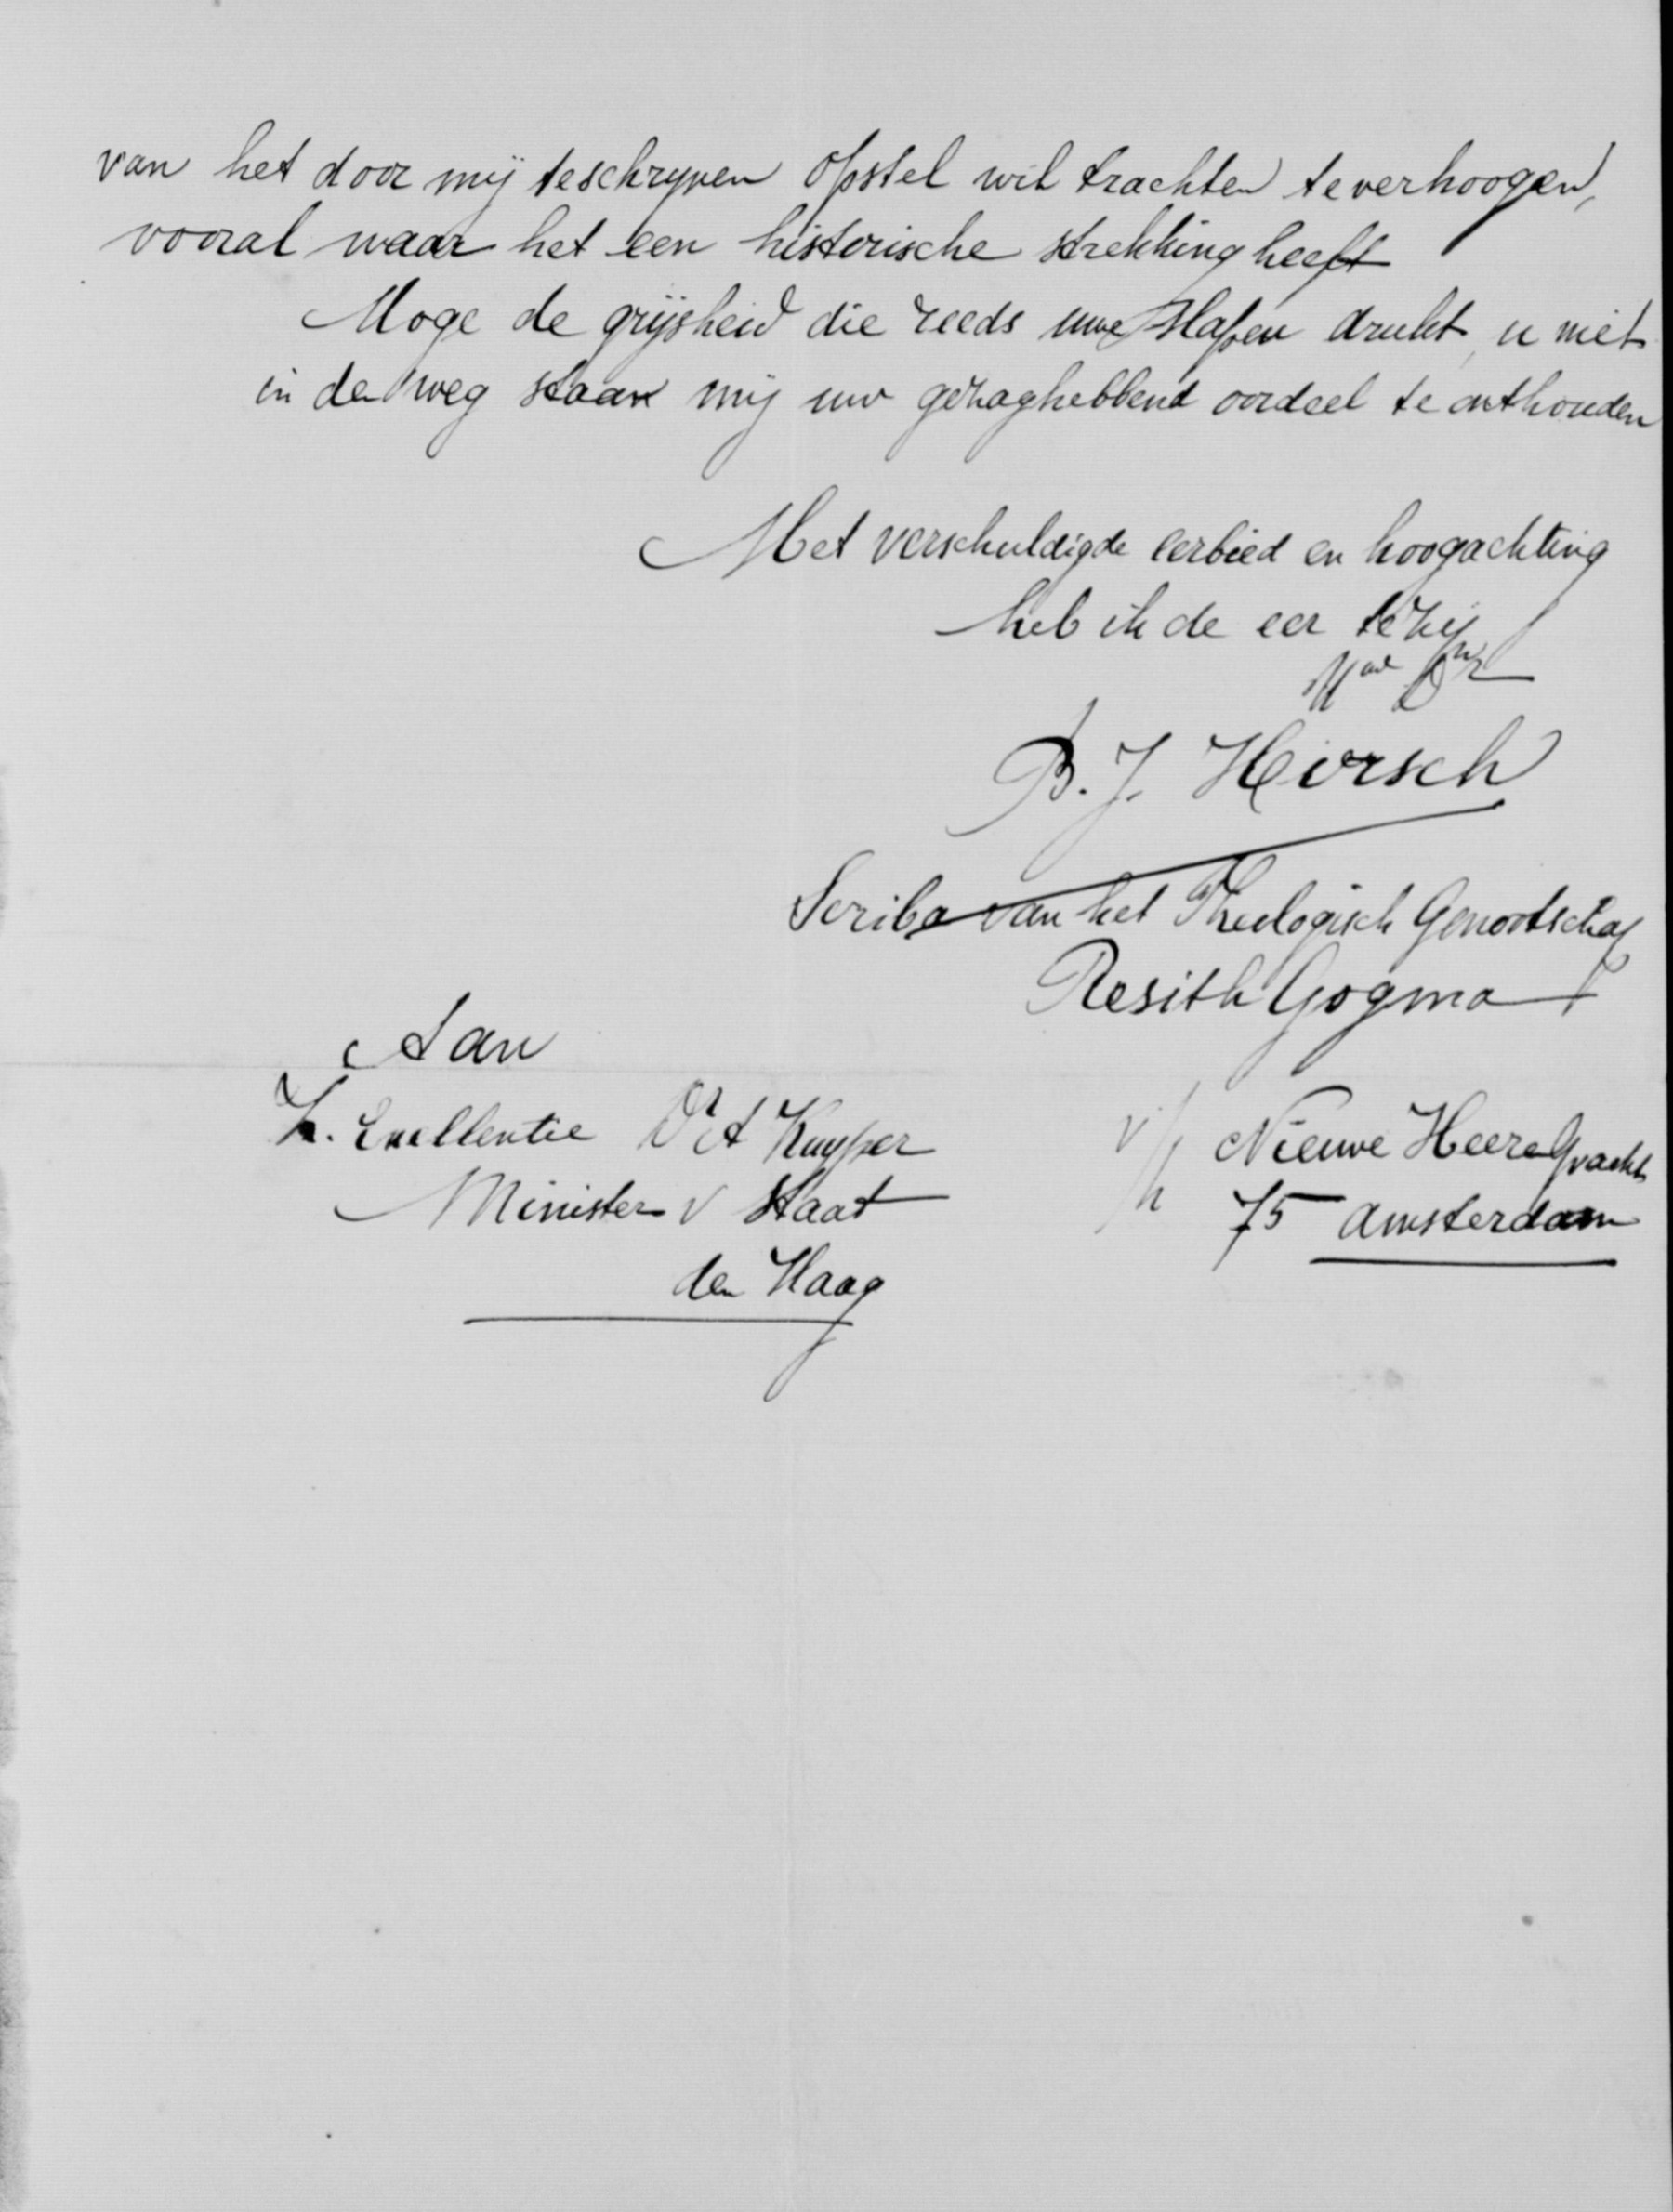 van het door mij teschryven opstel wil trachten teverhoogen,
vooral waar het een historische strekking heeft
Moge de grijsheid die reeds uwe slapen drukt, u niet
in de weg staan mij uw gezaghebbend oordeel te onthouden
Met verschuldigde eerbied en hoogachting
heb ik de eer te zijn
B. J. Hirsch
Scriba van het Theologisch Genootschap
Resith Gogma
Aan
Z. Exellentie Dr A Kuyper
Minister v Staat
den Haag
v/h Nieuwe HeereGracht
75 Amsterdam